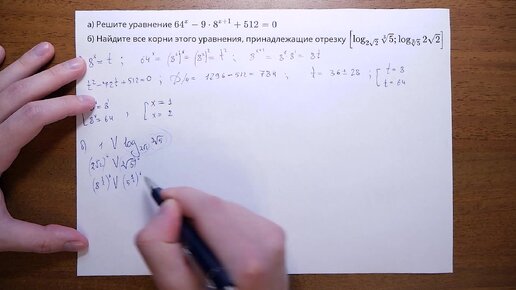 а) Решите уравнение 64^x − 9 · 8^{x+1} + 512 = 0
б) Найдите все корни этого уравнения, принадлежащие отрезку [log_{2√2} ∛5; log_{∛5} 2√2]
8^x = t ; 64^x = (8^2)^x = (8^x)^2 = t^2 ; 8^{x+1} = 8^x · 8^1 = 8t
t^2 − 72t + 512 = 0 ; D/4 = 1296 − 512 = 784 ; t = 36 ± 28 ; [ t = 8
t = 64
8^x = 8^1
8^x = 64
[ x = 1
x = 2
б) 1 V log_{2√2}
(2√2)